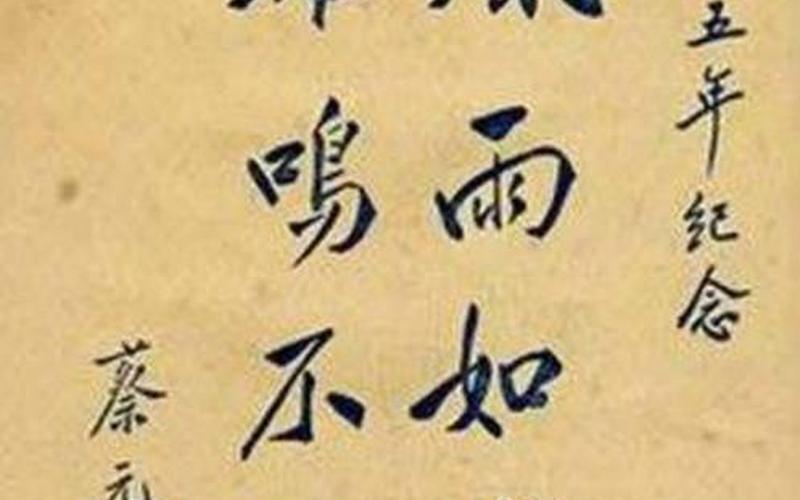 五年纪念
雨如
鸣不
蔡元